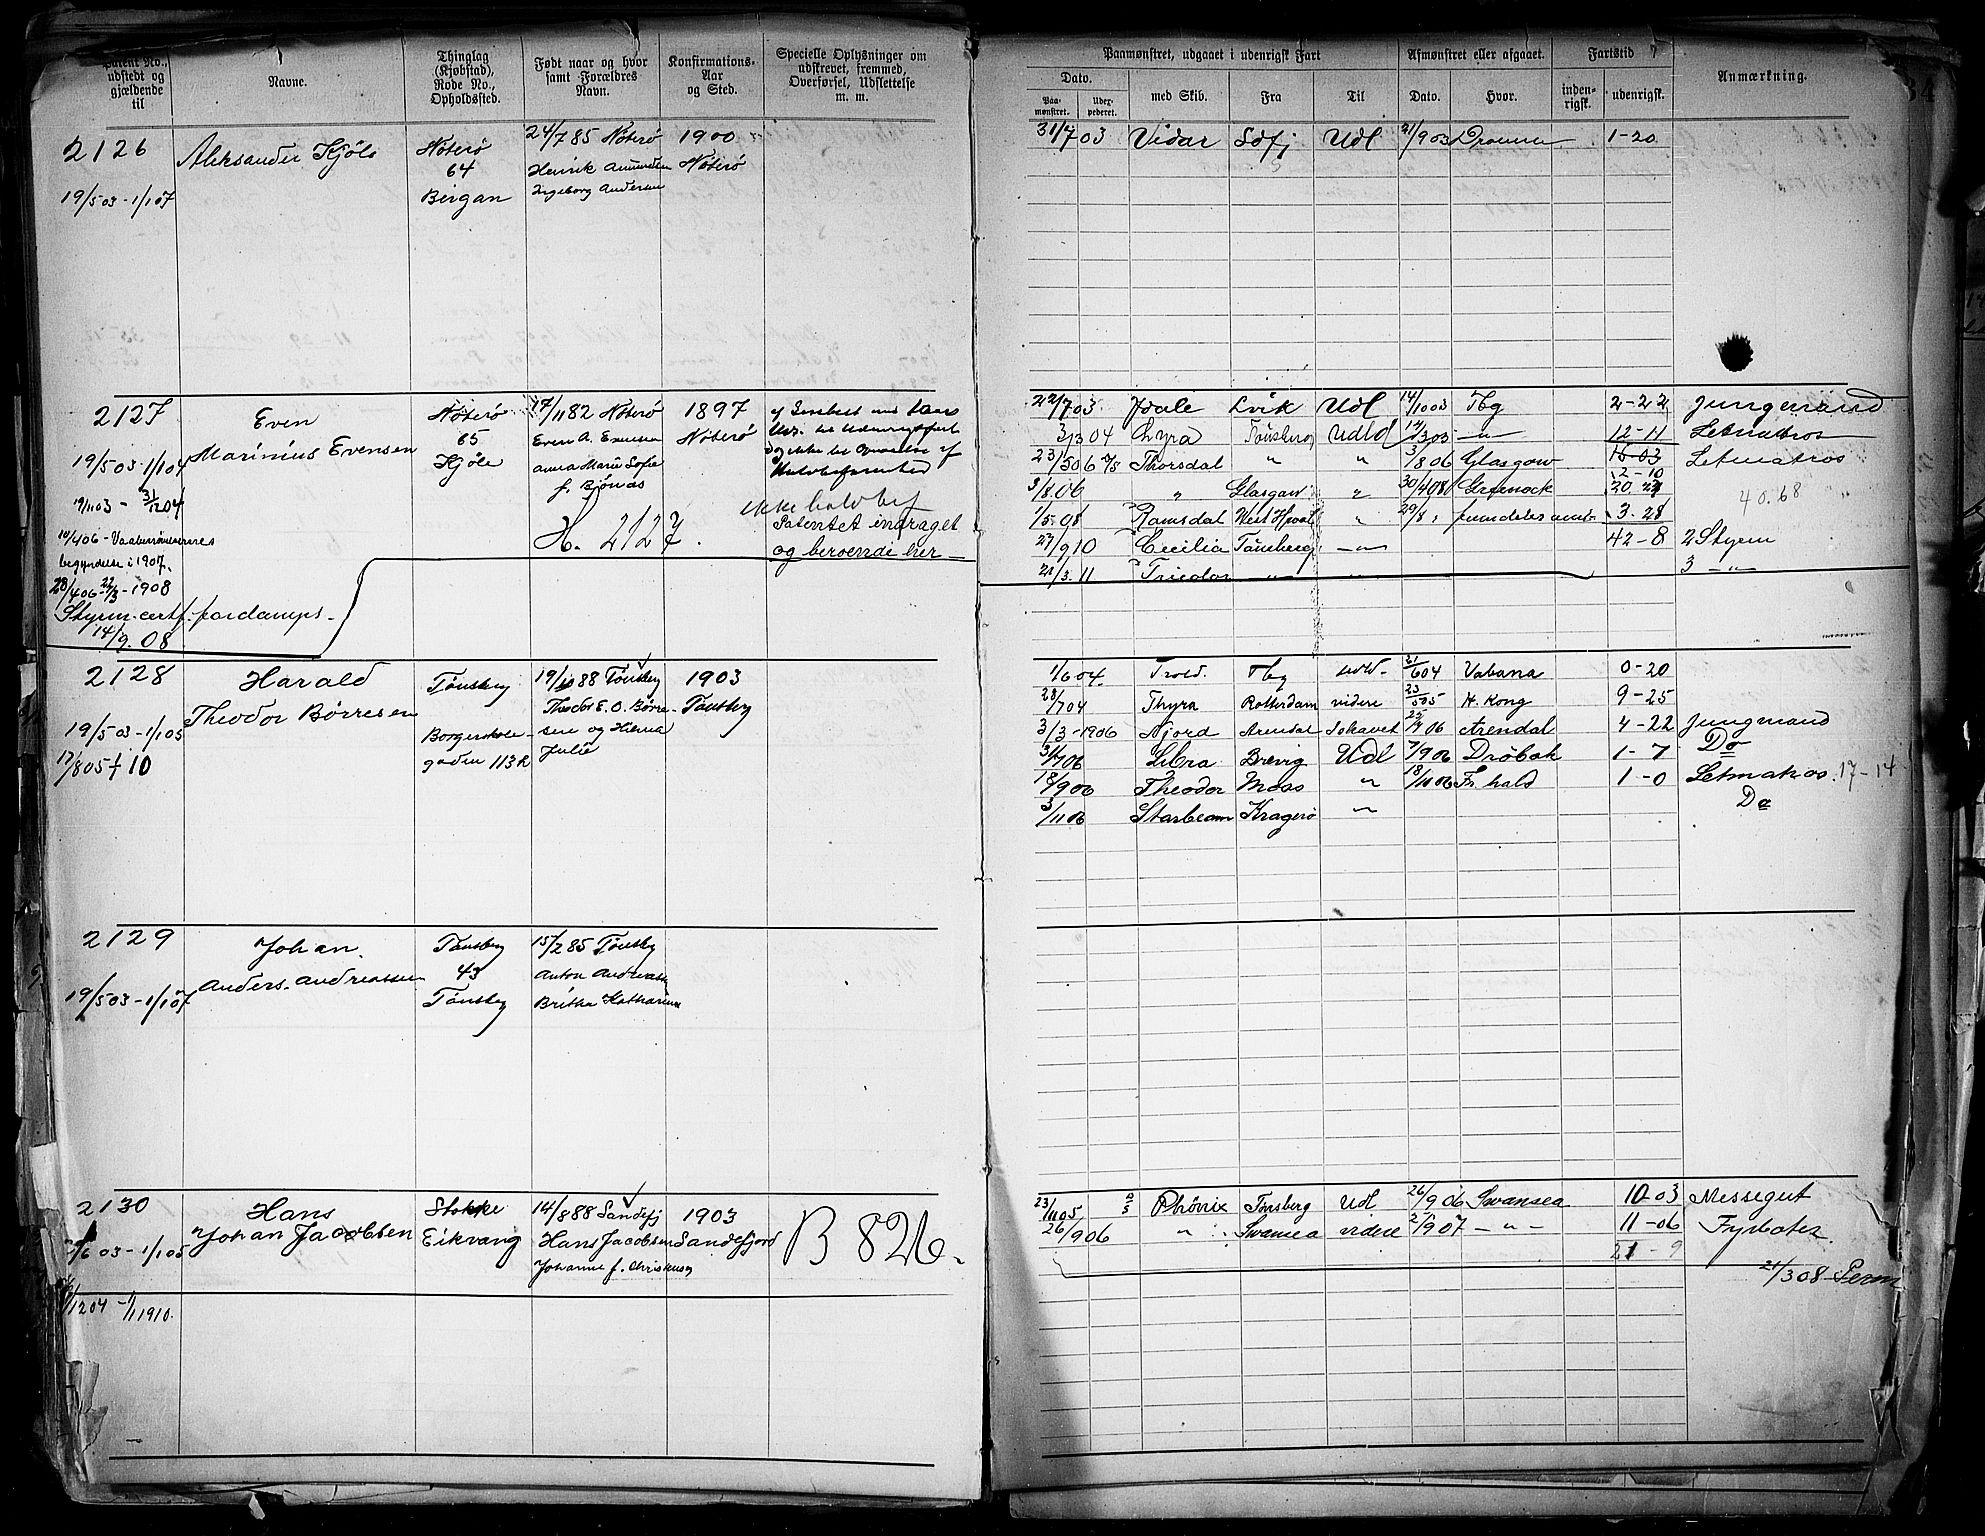 Patent No., udstedt og gjældende til
Navne.
Thinglag (Kjøbstad), Rode No., Opholdssted.
Født naar og hvor samt Forældres Navn.
Konfirmations-Aar og Sted.
Specielle Oplysninger om udskrevet, fremmed, Overførsel, Udslettelse m. m.
Paamønstret, udgaaet i udenrigsk Fart
Afmønstret eller afgaaet.
Fartstid
Anmærkning.
Dato.
med Skib.
Fra
Til
Dato.
Hvor.
inden-rigsk.
udenrigsk.
Paa-mønstret.
34
2126
19/5 03 - 1/1 07
Aleksander Kjöle
Nöterö
64
Bergan
24/7 85 Nöterö
Henrik Amundsen
Ingeborg Andersen
1900
Nöterö
31/7 03 Vidar Sdfj Udl 21/9 03 Drammen 1-20
2127
19/5 03 - 1/1 04
19/11 03 - 31/12 04
10/4 06 - Vaabenövelsernes
begyndelse i 1907.
28/4 06 - 22/3 - 1908
Styrm. certf. fordamps.
14/9. 08
Even
Marinius Evensen
Nöterö
65
Kjöle
17/11 82 Nöterö
Even A. Evensen
Anna Marie Sofie
f. Bjönnes
H. 2127
1897
Nöterö
ikke halvbef
Patentet indraget
og beroende her
22/7 03 Jdale Lvik Udl 14/10 03 Tbg 2-22 Jungmand
3/3 04 Lyra Tönsberg Udld 14/3 05 -"- 12-11 Letmatros
Thorsdal " " 3/8 06 Glasgow 15-03 Letmatros
2-10
3/8 06 " Glasgow " 30/4 08 Greenock 20.23
40.68
1/5.08 Ramsdal West Hpool " 29/8 3-28
27/9 10 Cecilia Tönsberg -"- 42-8 2 Styrm
21/3. 11 Tricolor -"- 3 -"-
2128
19/5 03 - 1/1 05
17/8 05 † 10
Harald
Theodor Börresen
Tönsberg
Borgerskole-
gaden 113 R
19/10 88 Tönsberg
Theodor E. O. Börre-
sen og Helena
Julie
1903
Tönsberg
1/6 04. Trold. Tbg udld. 21/6 04 Vabana 0-20
28/7 04 Thyra Rotterdam videre 23/5 05 H. Kong 9-25
3/3-1906 Njord Arendal Ishavet 25/7 06 Arendal 4-22 Jungmand
31/7 06 Libra Brevig Udl 7/9 06 Dröbak 1-7 Do
18/9 06 Theodor Moss " 18/10 06 Fr. hald 1-0 Letmatros. 17-14
3/11 06 Starbeam Kragerö " Do
2129
19/5 03 - 1/1 07
Johan.
Anders. Andreassen
Tönsberg
43
Tönsberg
15/2 85 Tönsberg
Anton Andreassen
Britha Katharina
2130
2/6 03 - 1/1 05
12 04 - 1/1 1910.
Hans
Johan Jacobsen
Stokke
Eikvang
14/8 88 Sandefj
Hans Jacobsen
Johanne f. Christensen
1903
Sandefjord
B 826.
23/11 05 D/S Phönix Tönsberg Udl 26/9 06 Swansea 10-03 Messegut
26/9 06 " Swansea videre 2/9 07 -"- 11-06 Fyrböter.
21-9
21/3 08 Perm